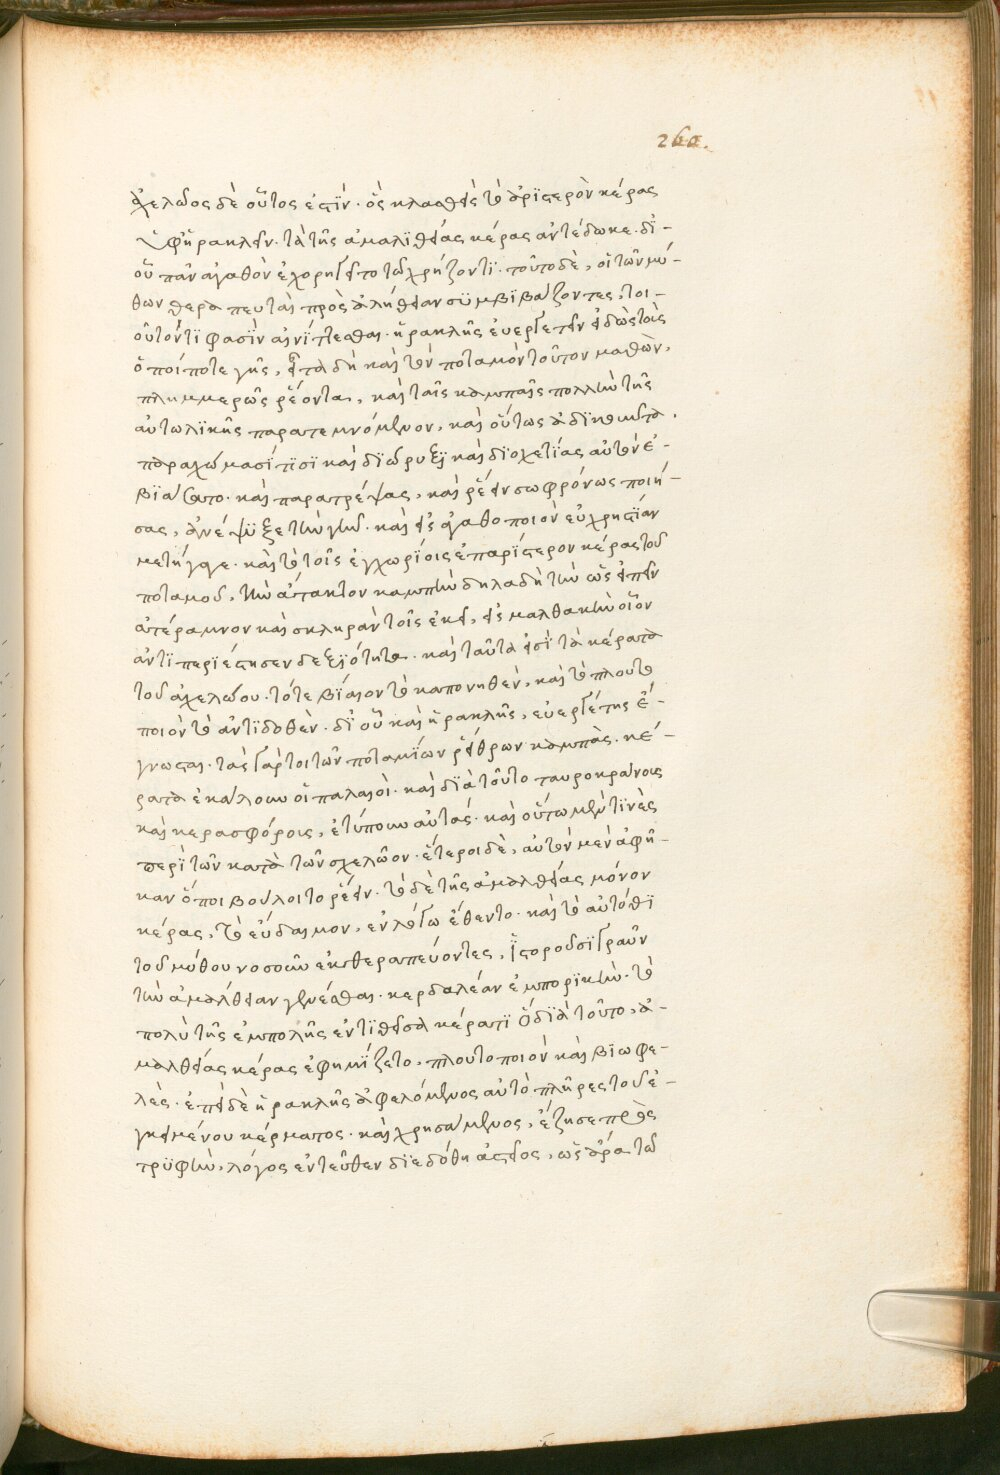 260.
ἀχελῶος δὲ οὗτος ἐστίν· ὃς κλασθεὶς τὸ ἀριστερὸν κέρας
ὑφ' ἡρακλεῖ· τὰ τῆς ἀμαλθείας κέρας ἀντέδωκε· δι-
οὗ πᾶν ἀγαθὸν ἐχορηγεῖτο τῷ χρήζοντι· τοῦτο δὲ, οἱ τῶν μύ-
θων θεραπευταὶ πρὸς ἀλήθειαν συμβιβάζοντες, τοι-
οῦτόν τι φασὶν αἰνίττεσθαι· ἡρακλῆς εὐεργετεῖν εἰδὼς τὰς
ὅποί ποτε γῆς, εἶτα δὴ καὶ τὸν ποταμὸν τοῦτον μαθὼν,
πλημμερῶς ῥέοντα, καὶ ταῖς καμπαῖς πολλὴν τῆς
αἰτωλικῆς παρατεμνόμενον, καὶ οὕτως ἀδικοῦντα,
παραχώμασί τισι καὶ διώρυξι καὶ διοχετίας αὐτὸν ἐ-
βιάσατο· καὶ παρατρέψας, καὶ ῥέειν σωφρόνως ποιή-
σας, ἀνέψυξε τὴν γῆν· καὶ εἰς ἀγαθοποιὸν εὐχρηστίαν
μετήγαγε· καὶ τὸ τοῖς ἐγχωρίοις ἐπαρίστερον κέρας τοῦ
ποταμοῦ, τὴν ἄτακτον καμπὴν δηλαδὴ τὴν ὡς εἰπεῖν
ἀτέραμνον καὶ σκληρὰν τοῖς ἐκεῖ, εἰς μαλθακὴν οἷον
ἀντιπεριέστησεν δεξιότητα· καὶ ταῦτα εἰσὶ τὰ κέρατα
τοῦ ἀχελώου· τό τε βίαιον τὸ καπονηθὲν, καὶ τὸ πλουτο
ποιὸν τὸ ἀντιδοθὲν· δι' οὗ καὶ ἡρακλῆς, εὐεργέτης ἔ-
γνωσται· τὰς γάρ τοι τῶν ποταμίων ῥείθρων καμπὰς, κέ-
ρατα ἐκάλουν οἱ παλαιοὶ· καὶ διὰ τοῦτο ταυροκράνοις
καὶ κερασφόροις, ἐτύπουν αὐτάς· καὶ οὕτω μὲν τινὲς
περὶ τῶν κατὰ τὸν ἀχελῶον· ἕτεροι δὲ, αὐτὸν μὲν ἀφῆ-
καν ὅποι βούλοιτο ῥέειν· τὸ δὲ τῆς ἀμαλθείας μόνον
κέρας, τὸ εὔδαιμον, ἐν λόγῳ ἔθεντο· καὶ τὸ αὐτόθι
τοῦ μύθου νοσοῦν ἐκθεραπεύοντες, ἱστοροῦσι γραῦν
τὴν ἀμάλθειαν γενέσθαι· κερδαλέαν ἐμπορικὴν· τὸ
πολὺ τῆς ἐμπολῆς ἐντιθεῖσα κέρατι ὃ διὰ τοῦτο, ἀ-
μαλθείας κέρας ἐφημίζετο, πλουτοποιὸν καὶ βιωφε-
λὲς· ἐπεὶ δὲ ἡρακλῆς ἀφελόμενος αὐτὸ πλῆρες τοῦ ἐ-
γκειμένου κέρματος· καὶ χρησάμενος, ἔζησε πρὸς
τρυφὴν, λόγος ἐντεῦθεν διεδόθη ἀστεῖος, ὡς ἄρα τῷ